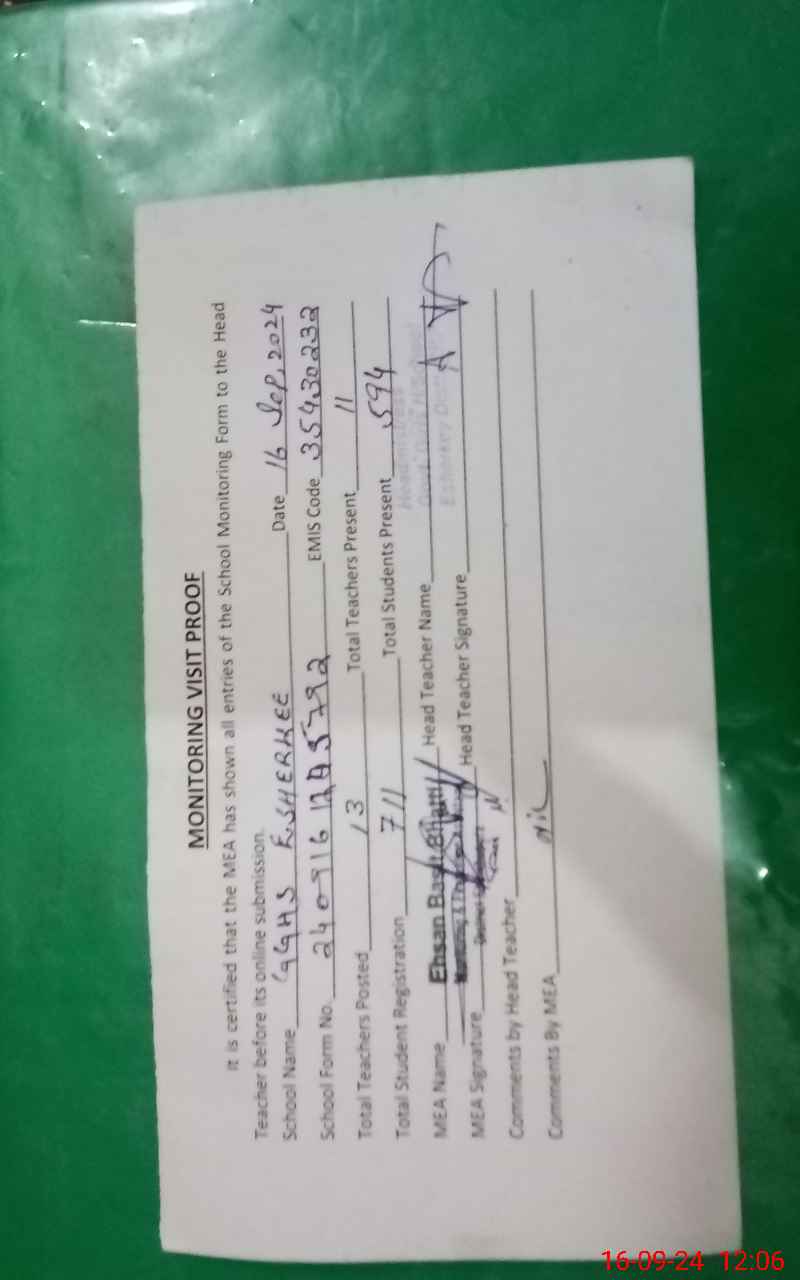 MONITORING VISIT PROOF
It is certified that the MEA has shown all entries of the School Monitoring Form to the Head
Teacher before its online submission.
School Name GGHS ESHERKEE Date 16 Sep, 2024
School Form No. 240916 12 5792 EMIS Code 35430232
Total Teachers Posted 13 Total Teachers Present 11
Total Student Registration 711 Total Students Present 594
MEA Name Ehsan Basit Bhatti Head Teacher Name
MEA Signature Head Teacher Signature
Headmistress
Comments by Head Teacher
Comments By MEA Nil
16-09-24 12:06